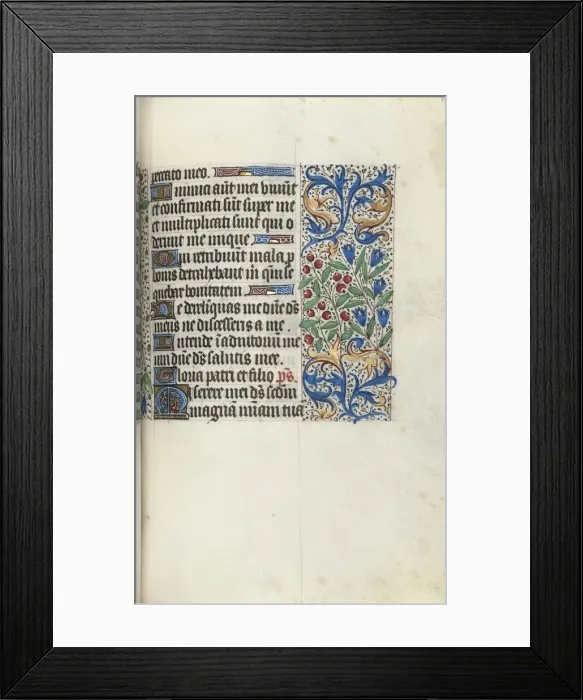 peccato meo.
Inimici aūt mei vivūt
et confirmati sūt super me
et multiplicati sunt qui o
derunt me inique
Qui retribuūt mala p
bonis detrahebant m̄ qm̄ se
quebar bonitatem
Ne derelīquas me dn̄e ds̄
meus ne discesseris a me.
Intende ī adiutoriū me
um dn̄e ds̄ salutis mee.
Gloria patri et filio ps̄.
Miserere mei ds̄ scd̄m
magnā mīam tuā